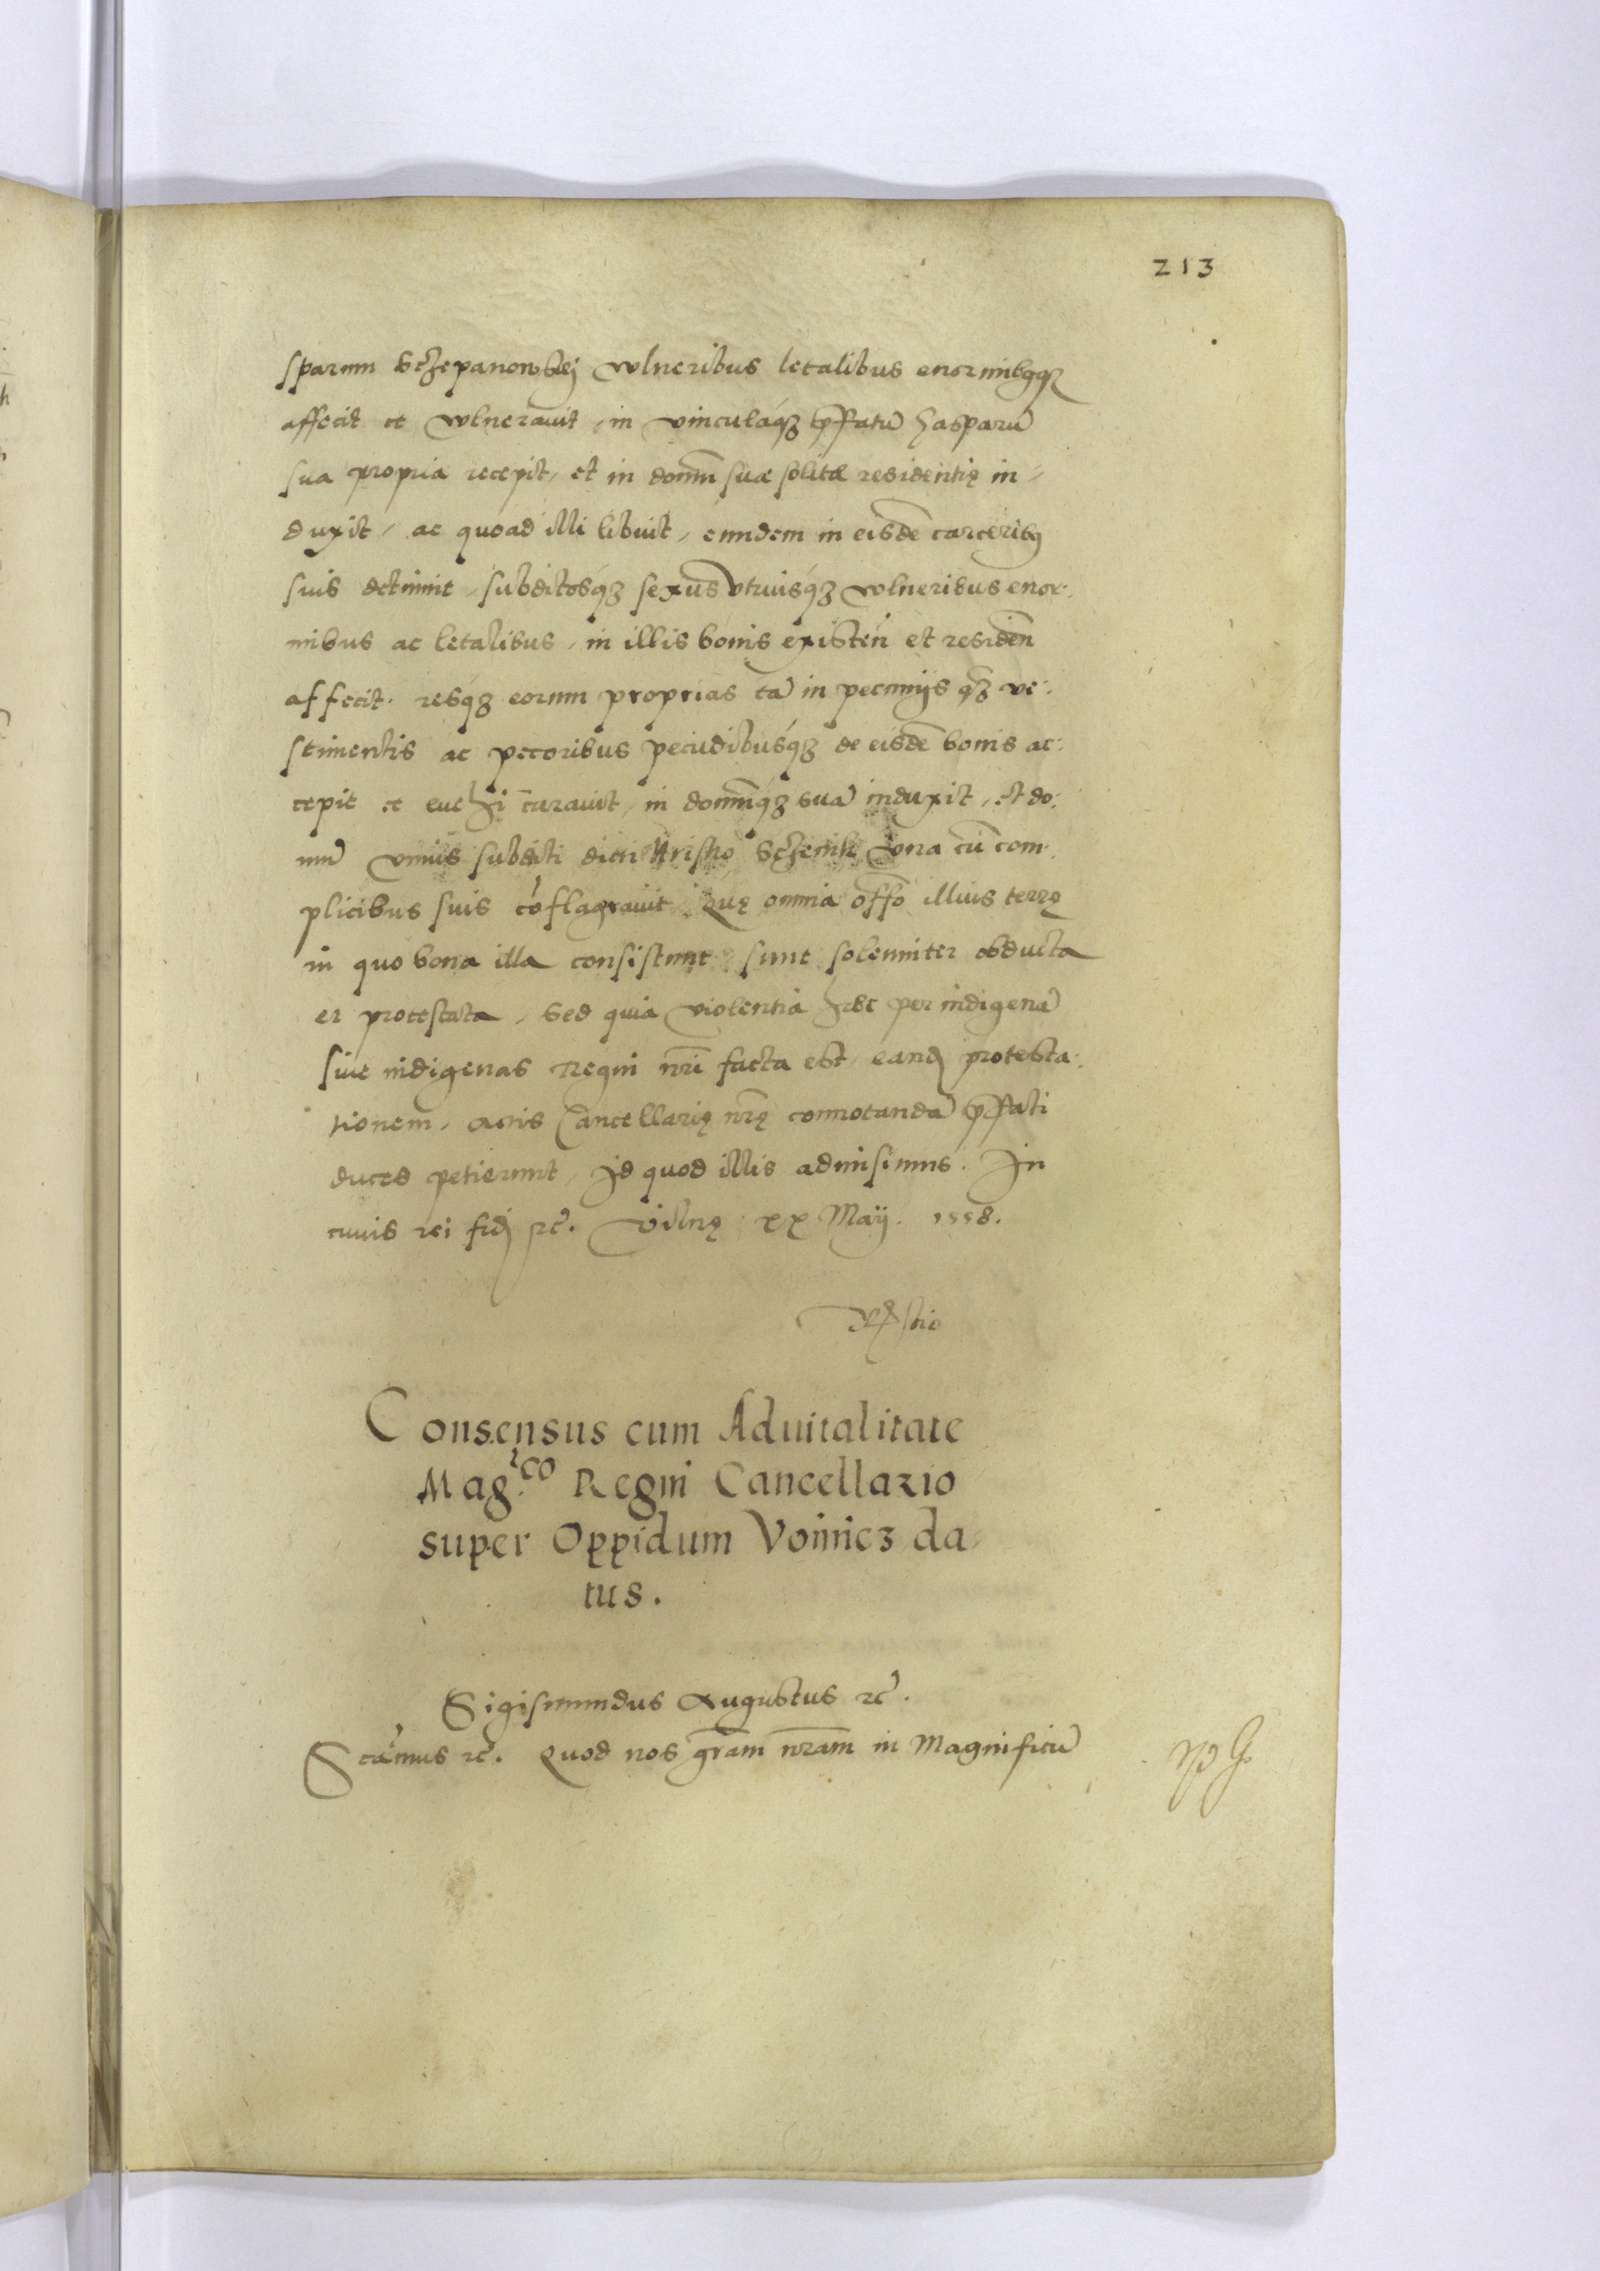 213
sparum Sczepanowskj vulneribus letalibus enormibusqꝫ
affecit et vulneravit, in vinculaqꝫ p̄fatū Gasparū
sua propria recepit, et in domū suæ solitæ residentię in-
duxit, ac quoad illi libuit, eundem in eisdē carceribꝫ
suis detinuit, subditosqꝫ sexus utriusqꝫ vulneribus enor-
mibus ac letalibus, in illis bonis existen̄ et residen̄
affecit, resqꝫ eorum proprias tā in pecuniis qꝫ ve-
stimentis ac pecoribus pecudibusqꝫ de eisdē bonis ac-
cepit et evehi curavit, in domumqꝫ suā induxit, et do-
mū unius subditi dicti una cū com-
plicibus suis cōflagravit. Quę omnia offō illius terrę
in quo bona illa consistunt sunt solenniter obducta
et protestata, sed quia violentia hæc per indigenā
sive indigenas Regni nr̄i facta est, eand protesta-
tionem, actis Cancellarię nr̄ę connotandā p̄fati
duces petierunt, Id quod illis admisimus. In
cuius rei fid ꝛc̄. Vilnę xx Maij. 1558.
Consensus cum Aduitalitate
Mag.co Regni Cancellario
super Oppidum Voinicz da-
tus.
Sigismundus Augustus ꝛc̄.
S ꝛc̄. Quod nos gr̄am nr̄am in Magnificū